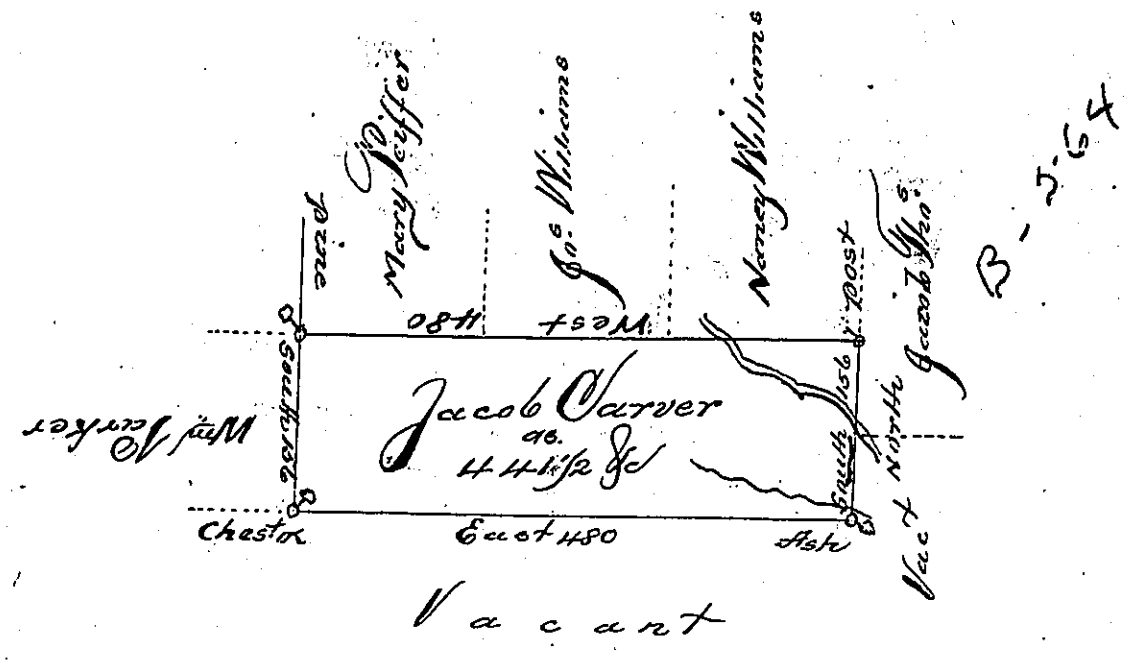 B-J-64
pine
Mary Peiffer
Jnº Williams
Nancy Williams
post
Jacob
West
480
South 156
Wm Parker
Jacob Carver
ac.
441 1/2
South
156
North
Vact
Chestn
East 480
Ash
Vacant